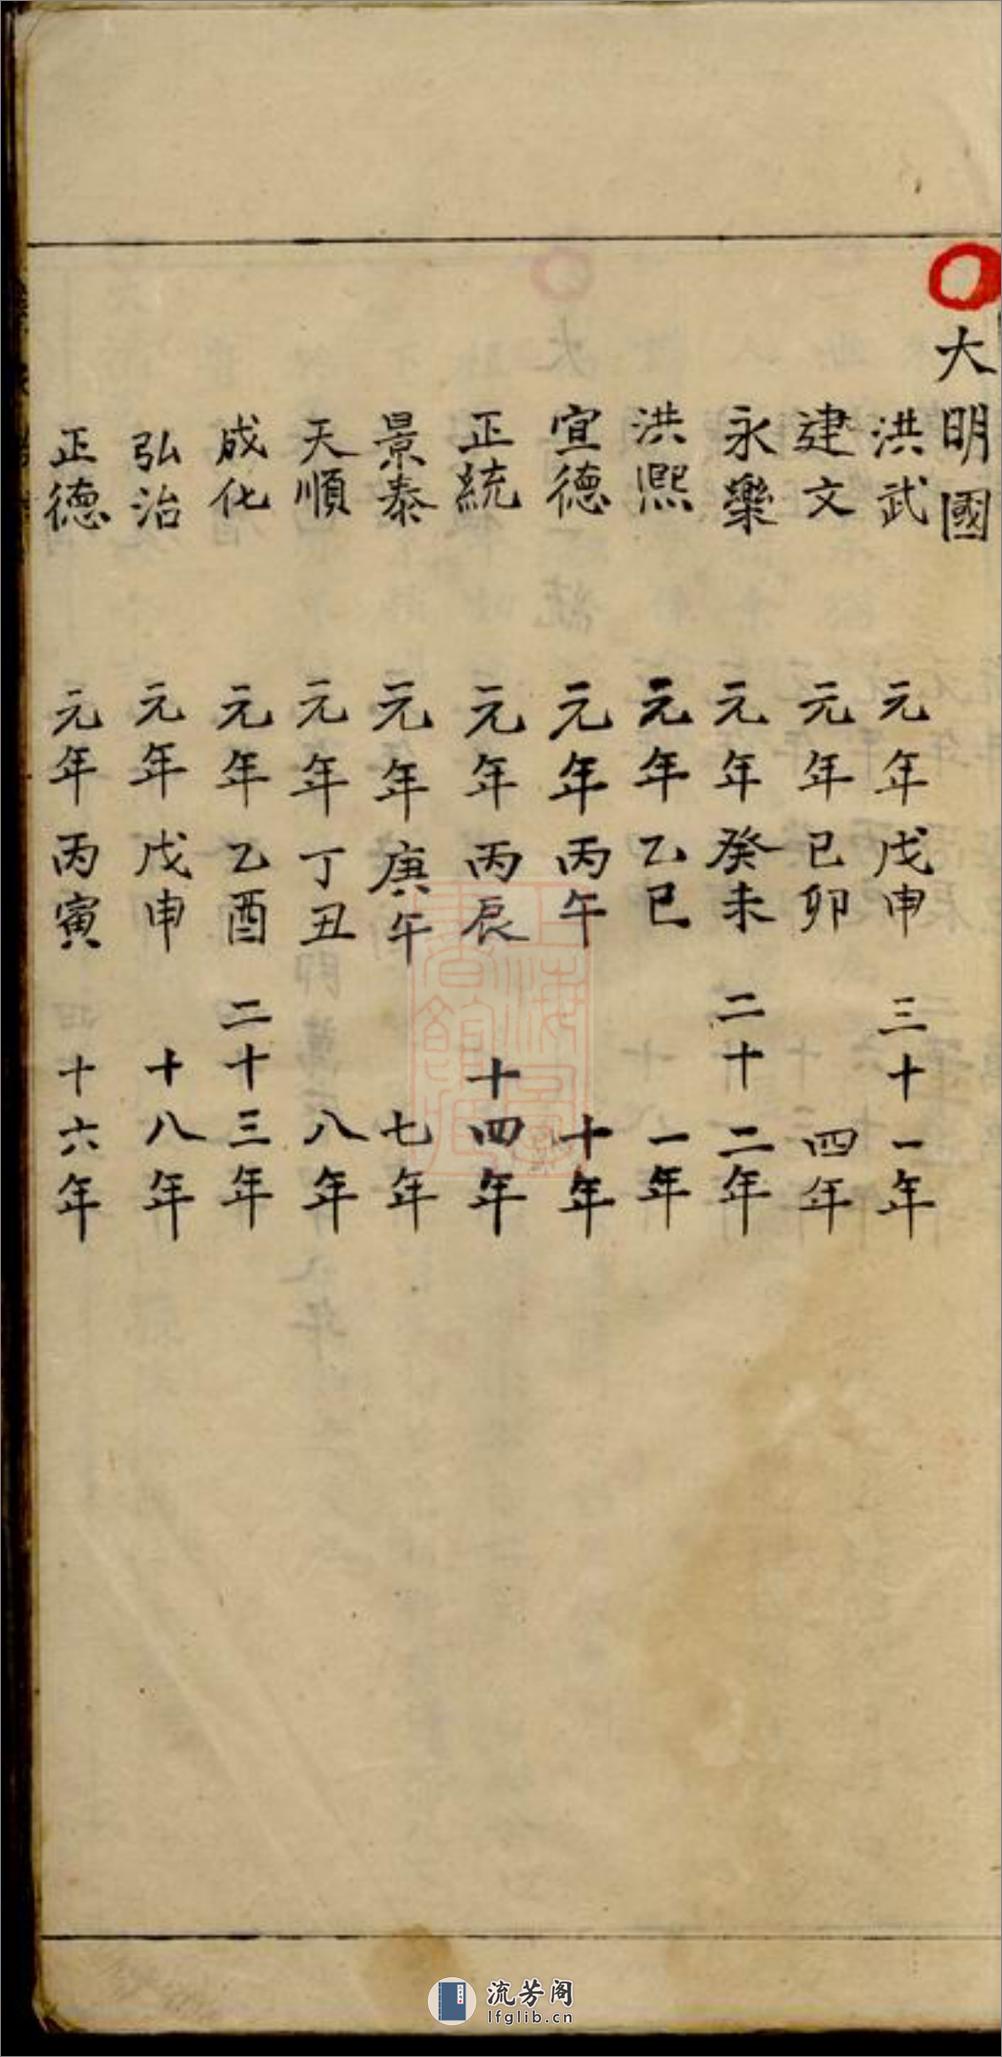 大明國
洪武 元年戊申 三十一年
建文 元年己卯 四年
永樂 元年癸未 二十二年
洪熙 元年乙巳 一年
宣德 元年丙午 十年
正統 元年丙辰 十四年
景泰 元年庚午 七年
天順 元年丁丑 八年
成化 元年乙酉 二十三年
弘治 元年戊申 十八年
正德 元年丙寅 十六年
流芳阁
lfglib.cn